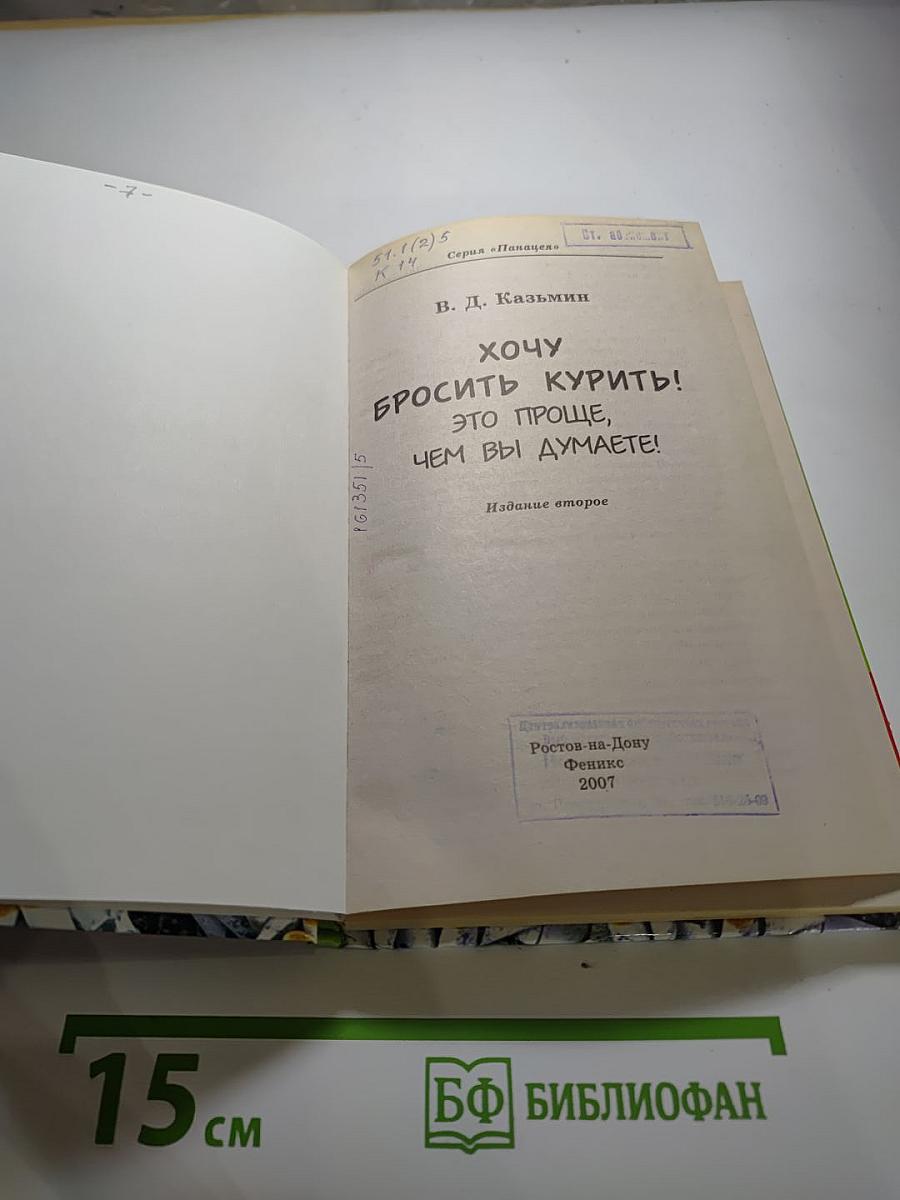 -7-
51.1(2)5
К 14
Серия «Панацея»
Ст. або
В. Д. Казьмин
ХОЧУ
БРОСИТЬ КУРИТЬ!
ЭТО ПРОЩЕ,
ЧЕМ ВЫ ДУМАЕТЕ!
Издание второе
Ростов-на-Дону
Феникс
2007
15 см
БФ БИБЛИОФАН